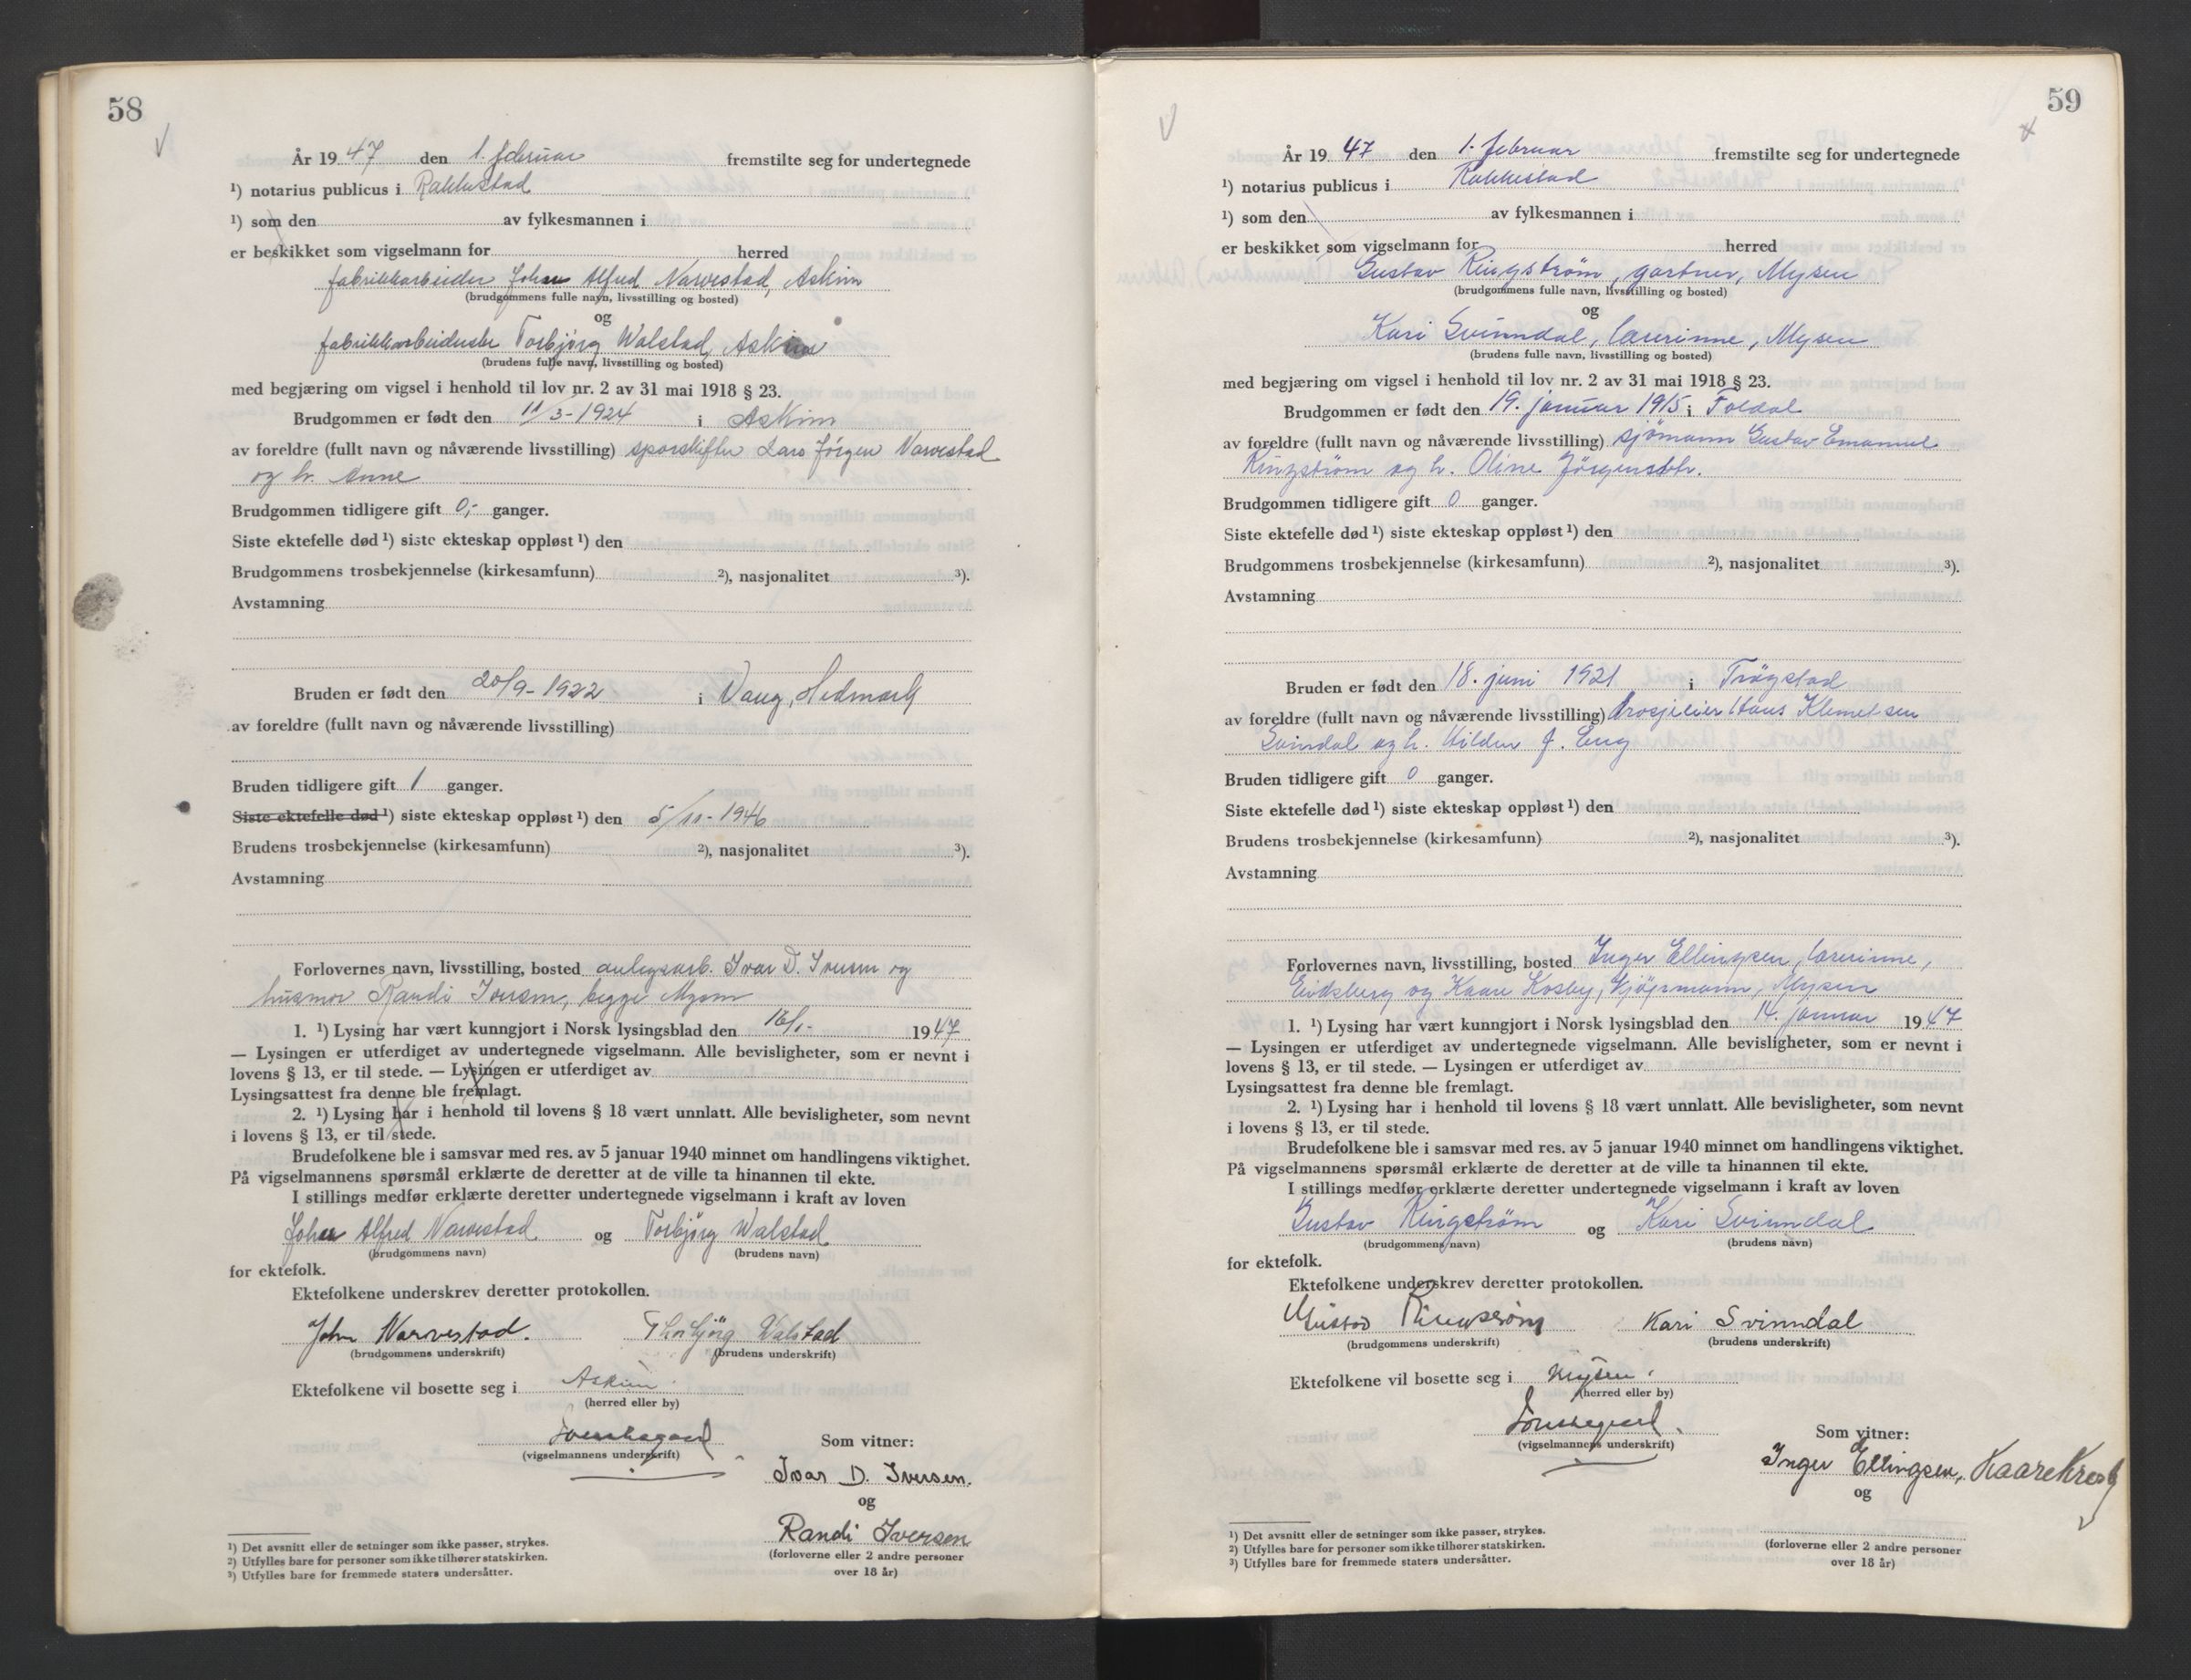 58
År 19 47 den 1. februar fremstilte seg for undertegnede
¹) notarius publicus i Rakkestad
¹) som den av fylkesmannen i
er beskikket som vigselmann for herred
fabrikkarbeider Johan Alfred Narvestad, Askim
(brudgommens fulle navn, livsstilling og bosted)
og
fabrikkarbeiderske Torbjørg Walstad, Askim
(brudens fulle navn, livsstilling og bosted)
med begjæring om vigsel i henhold til lov nr. 2 av 31 mai 1918 § 23.
Brudgommen er født den 11/3-1924 i Askim
av foreldre (fullt navn og nåværende livsstilling) sporskifter Lars Jørgen Narvestad
og h. Anne
Brudgommen tidligere gift 0,- ganger.
Siste ektefelle død ¹) siste ekteskap oppløst ¹) den
Brudgommens trosbekjennelse (kirkesamfunn) ²), nasjonalitet ³).
Avstamning
Bruden er født den 20/9-1922 i Vang, Hedmark
av foreldre (fullt navn og nåværende livsstilling)
Bruden tidligere gift 1 ganger.
Siste ektefelle død ¹) siste ekteskap oppløst ¹) den 5/11-1946
Brudens trosbekjennelse (kirkesamfunn) ²), nasjonalitet ³).
Avstamning
Forlovernes navn, livsstilling, bosted anlegsarb. Ivar D. Iversen og
husmor Randi Iversen, begge Mysen
1. ¹) Lysing har vært kunngjort i Norsk lysingsblad den 16/1- 1947
— Lysingen er utferdiget av undertegnede vigselmann. Alle bevisligheter, som er nevnt i
lovens § 13, er til stede. — Lysingen er utferdiget av
Lysingsattest fra denne ble fremlagt.
2. ¹) Lysing har i henhold til lovens § 18 vært unnlatt. Alle bevisligheter, som nevnt
i lovens § 13, er til stede.
Brudefolkene ble i samsvar med res. av 5 januar 1940 minnet om handlingens viktighet.
På vigselmannens spørsmål erklærte de deretter at de ville ta hinannen til ekte.
I stillings medfør erklærte deretter undertegnede vigselmann i kraft av loven
Johan Alfred Narvestad og Torbjørg Walstad
(brudgommens navn) (brudens navn)
for ektefolk.
Ektefolkene underskrev deretter protokollen.
John Narvestad. Thorbjörg Walstad
(brudgommens underskrift) (brudens underskrift)
Ektefolkene vil bosette seg i Askim.
(herred eller by)
(vigselmannens underskrift)
Som vitner:
Ivar D. Iversen.
og
Randi Iversen
(forloverne eller 2 andre personer
over 18 år)
¹) Det avsnitt eller de setninger som ikke passer, strykes.
²) Utfylles bare for personer som ikke tilhører statskirken.
³) Utfylles bare for fremmede staters undersåtter.
59
År 19 47 den 1. februar fremstilte seg for undertegnede
¹) notarius publicus i Rakkestad
¹) som den av fylkesmannen i
er beskikket som vigselmann for herred
Gustav Ringström, gartner, Mysen
(brudgommens fulle navn, livsstilling og bosted)
og
Kari Svinndal, lærerinne, Mysen
(brudens fulle navn, livsstilling og bosted)
med begjæring om vigsel i henhold til lov nr. 2 av 31 mai 1918 § 23.
Brudgommen er født den 19. januar 1915 i Foldal
av foreldre (fullt navn og nåværende livsstilling) sjömann Gustav Emanuel
Ringström og h. Oline Jörgensdtr.
Brudgommen tidligere gift 0 ganger.
Siste ektefelle død ¹) siste ekteskap oppløst ¹) den
Brudgommens trosbekjennelse (kirkesamfunn) ²), nasjonalitet ³).
Avstamning
Bruden er født den 18. juni 1921 i Trögstad
av foreldre (fullt navn og nåværende livsstilling) Hans Klemetsen
Svindal og h. Hilda J. Eng
Bruden tidligere gift 0 ganger.
Siste ektefelle død ¹) siste ekteskap oppløst ¹) den
Brudens trosbekjennelse (kirkesamfunn) ²), nasjonalitet ³).
Avstamning
Forlovernes navn, livsstilling, bosted Inger Ellingsen, lærerinne,
Eidsberg og Kaare Kosby, kjöpmann, Mysen
1. ¹) Lysing har vært kunngjort i Norsk lysingsblad den 14. januar 1947
— Lysingen er utferdiget av undertegnede vigselmann. Alle bevisligheter, som er nevnt i
lovens § 13, er til stede. — Lysingen er utferdiget av
Lysingsattest fra denne ble fremlagt.
2. ¹) Lysing har i henhold til lovens § 18 vært unnlatt. Alle bevisligheter, som nevnt
i lovens § 13, er til stede.
Brudefolkene ble i samsvar med res. av 5 januar 1940 minnet om handlingens viktighet.
På vigselmannens spørsmål erklærte de deretter at de ville ta hinannen til ekte.
I stillings medfør erklærte deretter undertegnede vigselmann i kraft av loven
Gustav Ringström og Kari Svinndal
(brudgommens navn) (brudens navn)
for ektefolk.
Ektefolkene underskrev deretter protokollen.
Gustav Ringström Kari Svinndal
(brudgommens underskrift) (brudens underskrift)
Ektefolkene vil bosette seg i Mysen.
(herred eller by)
(vigselmannens underskrift)
Som vitner:
Inger Ellingsen, Kaare
og
(forloverne eller 2 andre personer
over 18 år)
¹) Det avsnitt eller de setninger som ikke passer, strykes.
²) Utfylles bare for personer som ikke tilhører statskirken.
³) Utfylles bare for fremmede staters undersåtter.